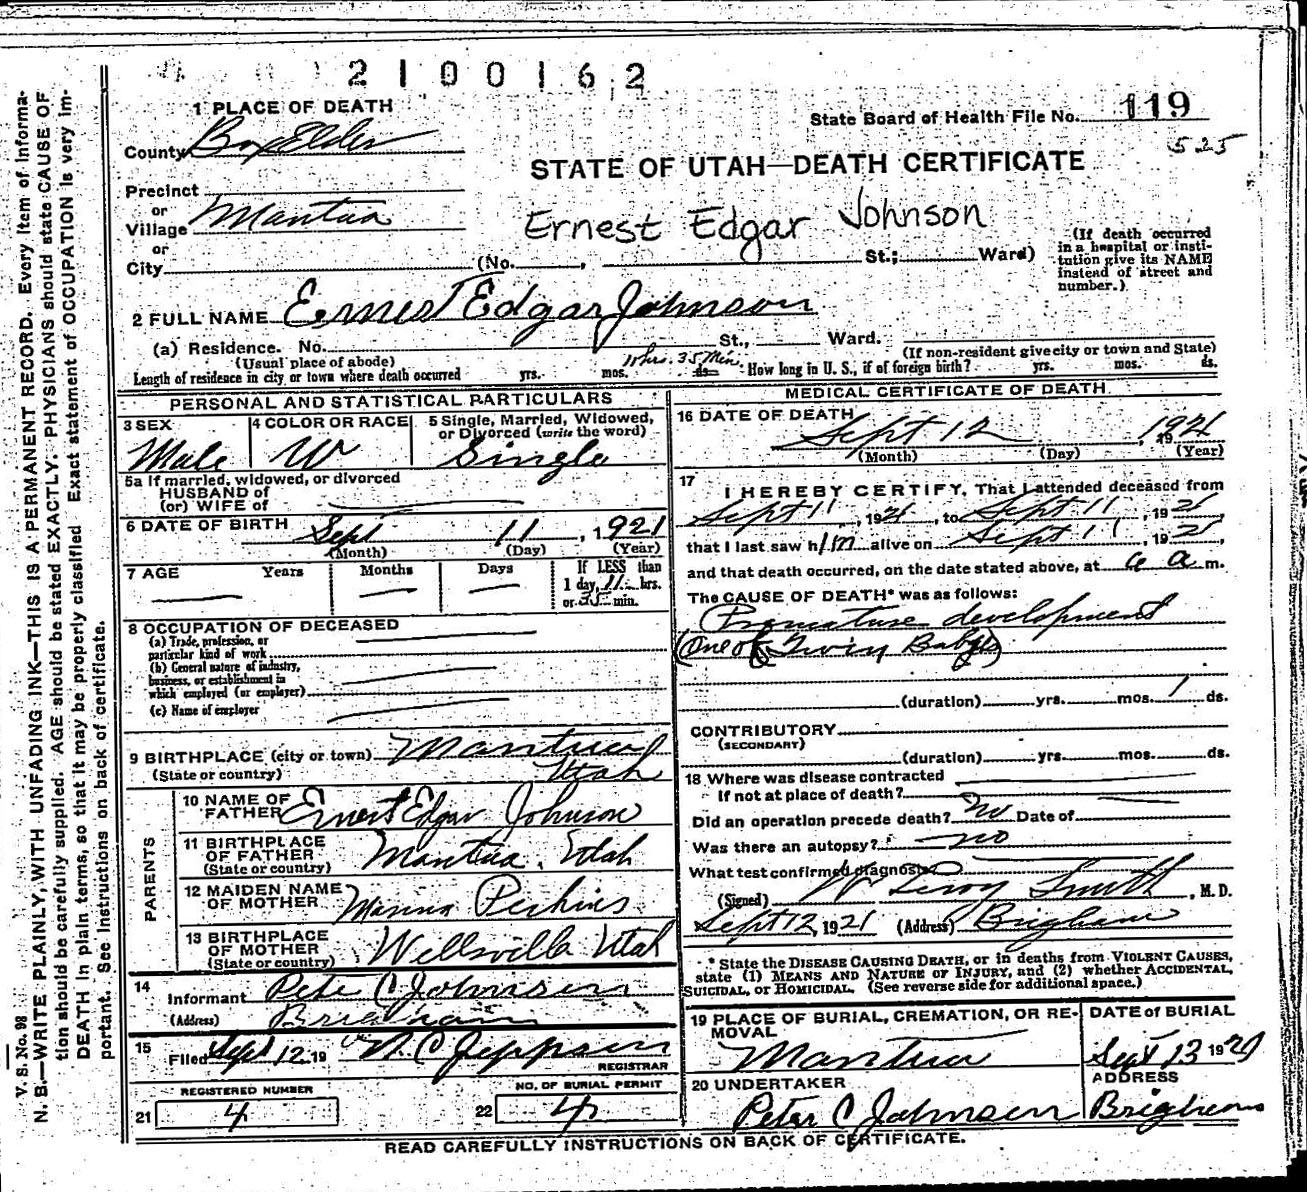 2100162
1 PLACE OF DEATH
State Board of Health File No. 119
525
County Box Elder
STATE OF UTAH—DEATH CERTIFICATE
Precinct
or
Village Mantua
Ernest Edgar Johnson
or
City (No. , St.; Ward)
(If death occurred in a hospital or institution give its NAME instead of street and number.)
2 FULL NAME Ernest Edgar Johnson
(a) Residence. No. St., Ward.
(Usual place of abode) (If non-resident give city or town and State)
11 hrs. 35 Min.
Length of residence in city or town where death occurred yrs. mos. ds. How long in U. S., if of foreign birth? yrs. mos. ds.
PERSONAL AND STATISTICAL PARTICULARS
3 SEX Male
4 COLOR OR RACE W
5 Single, Married, Widowed, or Divorced (write the word) Single
5a If married, widowed, or divorced
HUSBAND of
(or) WIFE of
6 DATE OF BIRTH Sept 11, 1921
(Month) (Day) (Year)
7 AGE Years Months Days If LESS than
1 day, 11 hrs.
or 35 min.
8 OCCUPATION OF DECEASED
(a) Trade, profession, or
particular kind of work
(b) General nature of industry,
business, or establishment in
which employed (or employer)
(c) Name of employer
9 BIRTHPLACE (city or town) Mantua
(State or country) Utah
PARENTS
10 NAME OF FATHER Ernest Edgar Johnson
11 BIRTHPLACE OF FATHER (State or country) Mantua, Utah
12 MAIDEN NAME OF MOTHER Perkins
13 BIRTHPLACE OF MOTHER (State or country) Wellsville Utah
14
Informant Pete C Johnsen
(Address) Brigham
15
Filed Sept 12, 19 N. C. Jeppsen
REGISTRAR
REGISTERED NUMBER
21 4
NO. OF BURIAL PERMIT
22 4
MEDICAL CERTIFICATE OF DEATH
16 DATE OF DEATH
Sept 12, 1921
(Month) (Day) (Year)
17
I HEREBY CERTIFY, That I attended deceased from
Sept 11, 1921, to Sept 11, 1921,
that I last saw him alive on Sept 11, 1921,
and that death occurred, on the date stated above, at 6 a m.
The CAUSE OF DEATH* was as follows:
Premature development
(One of Twin Babys)
(duration) yrs. mos. 1 ds.
CONTRIBUTORY
(SECONDARY)
(duration) yrs. mos. ds.
18 Where was disease contracted
If not at place of death?
Did an operation precede death? No Date of
Was there an autopsy? no
What test confirmed diagnosis
(Signed) W Leroy Smith, M. D.
Sept 12, 1921 (Address) Brigham
* State the DISEASE CAUSING DEATH, or in deaths from VIOLENT CAUSES,
state (1) MEANS AND NATURE OF INJURY, and (2) whether ACCIDENTAL,
SUICIDAL, or HOMICIDAL. (See reverse side for additional space.)
19 PLACE OF BURIAL, CREMATION, OR REMOVAL
Mantua
DATE of BURIAL
Sept 13 1921
20 UNDERTAKER
Peter C Johnsen
ADDRESS
Brigham
READ CAREFULLY INSTRUCTIONS ON BACK OF CERTIFICATE.
V. S. No. 98
N. B.—WRITE PLAINLY, WITH UNFADING INK—THIS IS A PERMANENT RECORD. Every item of informa-
tion should be carefully supplied. AGE should be stated EXACTLY. PHYSICIANS should state CAUSE OF
DEATH in plain terms, so that it may be properly classified. Exact statement of OCCUPATION is very im-
portant. See instructions on back of certificate.